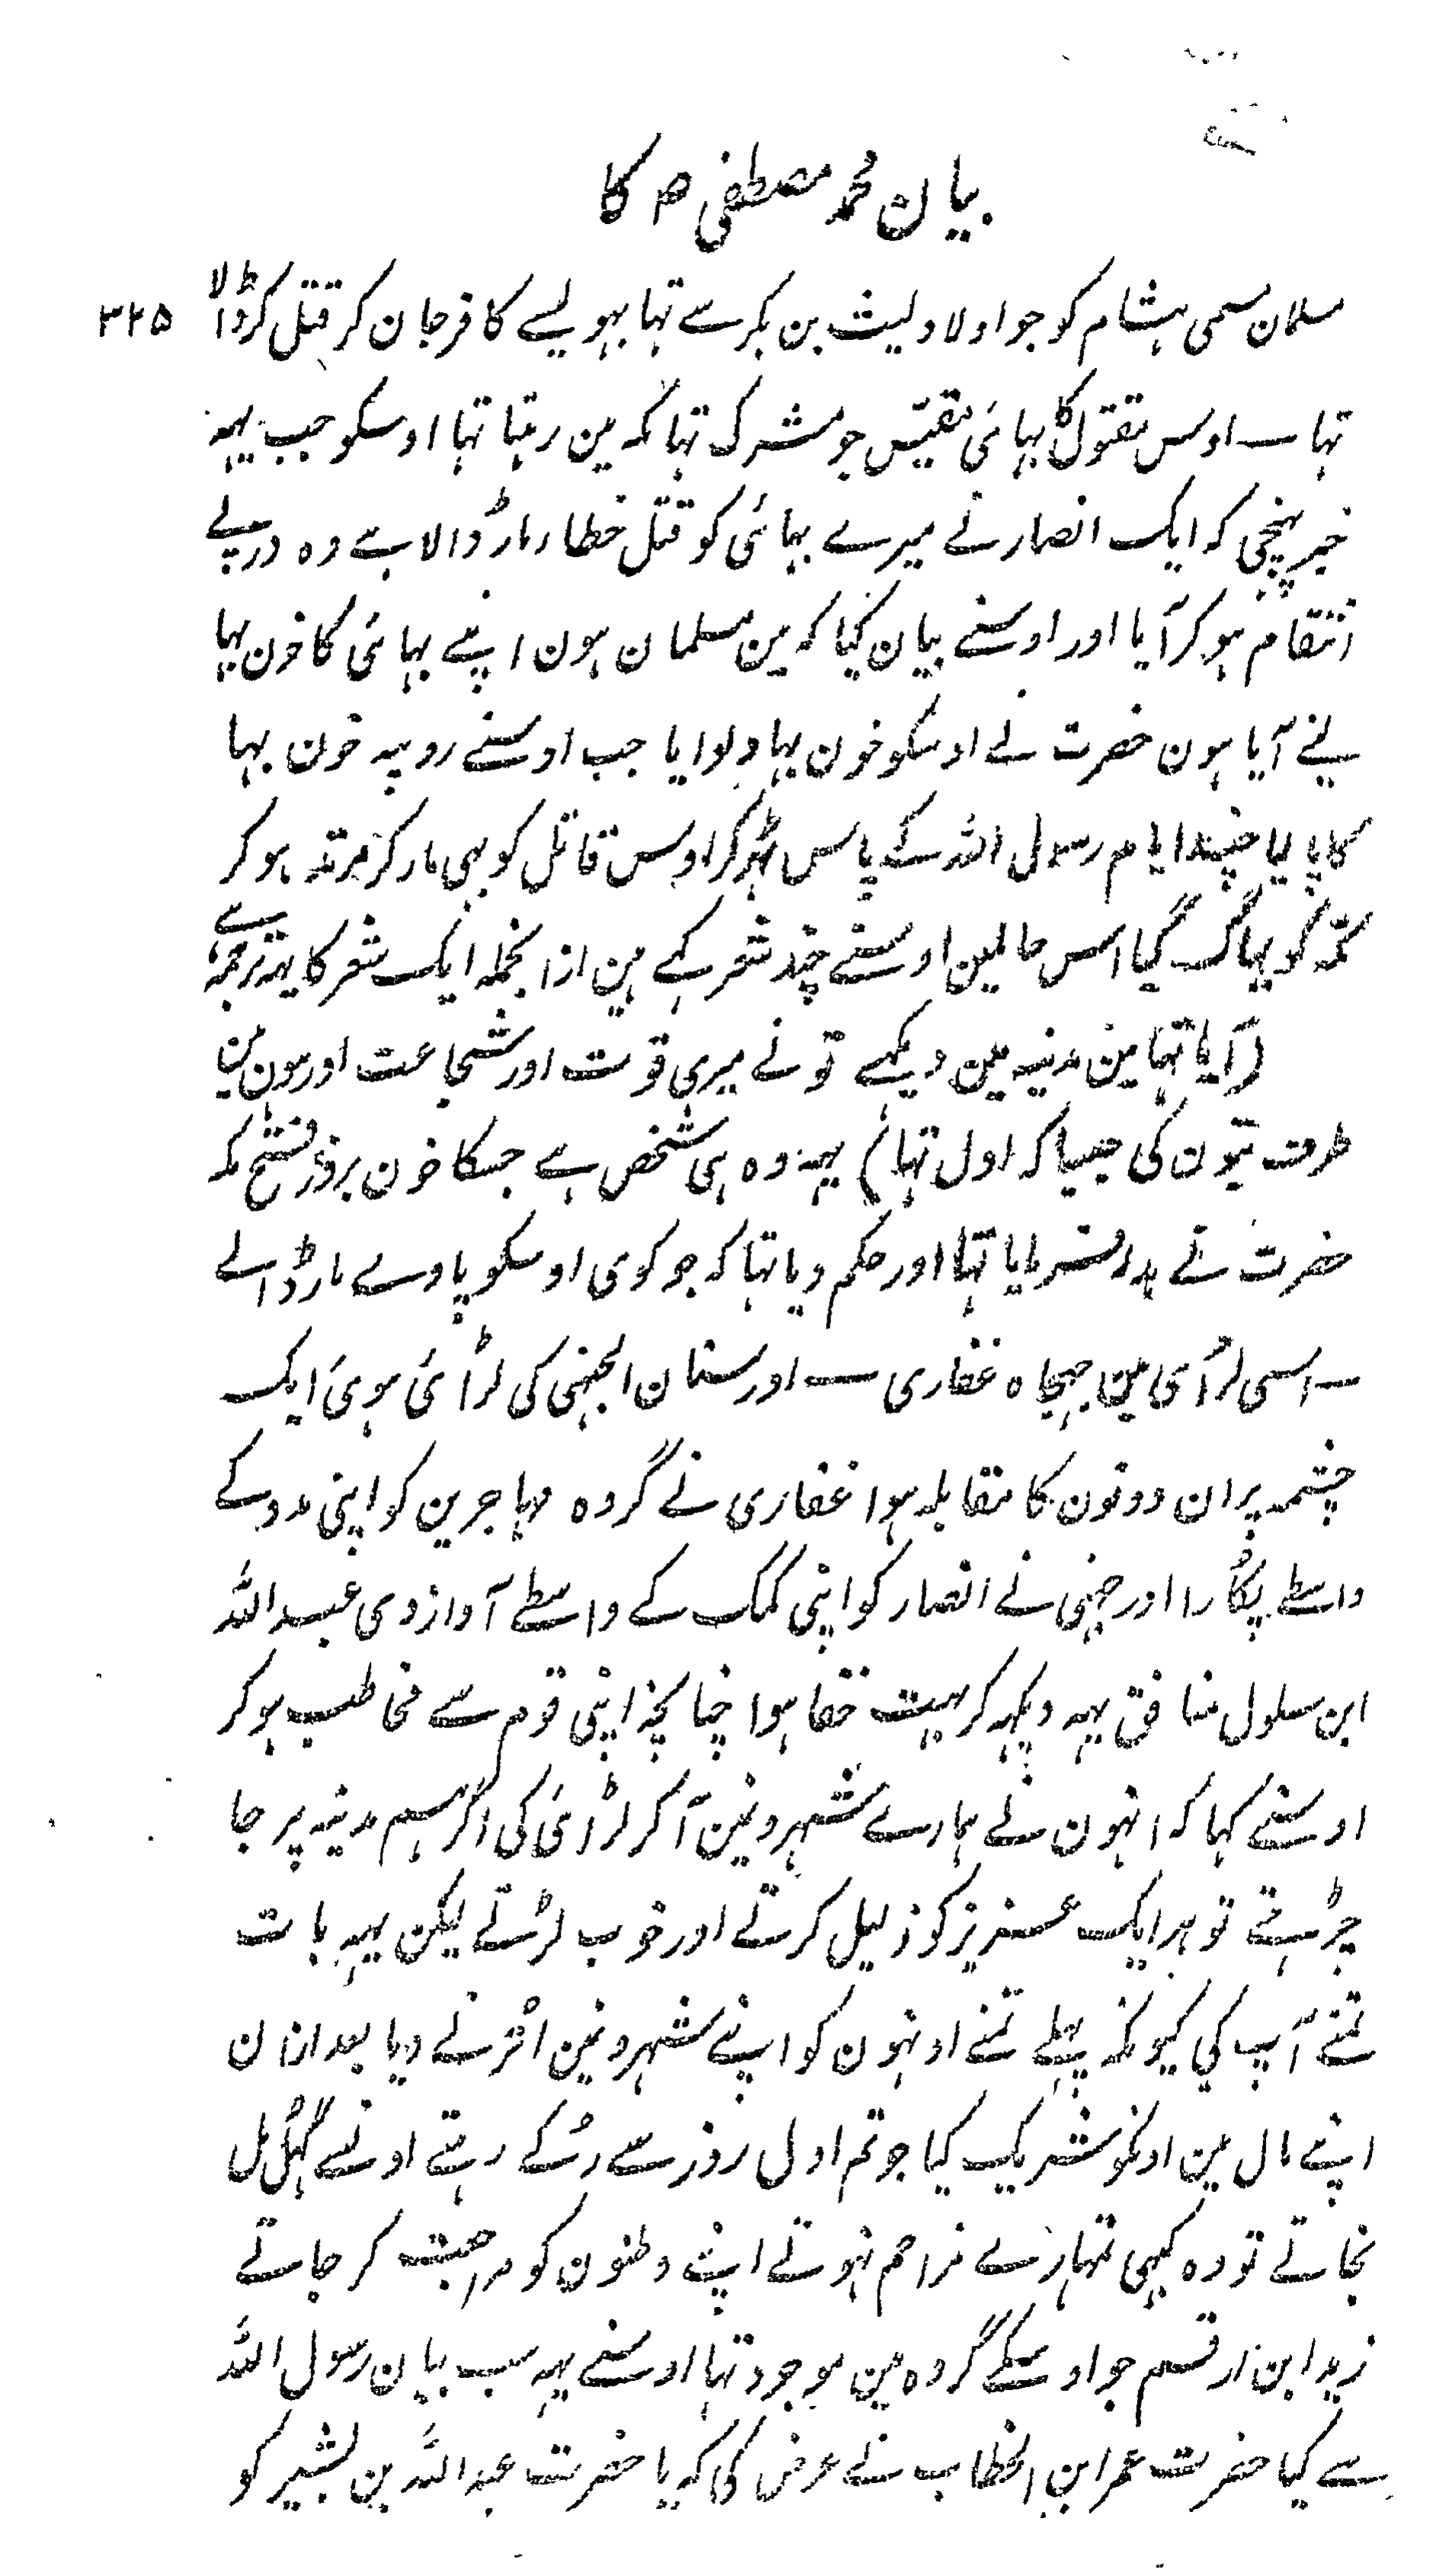 بیان محمد مصطفی ص کا
مسلمان مسمی ہشام کو جو اولاد لیث بن بکر سے تہا بہولے کافر جان کر قتل کر ڈالا ۳۲۵
تہا ــ اوس مقتول کا بہائی مقیس جو مشرک تہا مکہ مین رہتا تہا اوسکو جب یہہ
خبر پہنچی کہ ایک انصار نے میرے بہائی کو قتل خطا، مار ڈالا ہے وہ درپے
انتقام ہو کر آیا اور اوسنے بیان کیا کہ مین مسلمان ہون اپنے بہائی کا خون بہا
لینے آیا ہون حضرت نے اوسکو خون بہا دلوایا جب اوسنے روپیہ خون بہا
کا پا لیا چند ایام رسول اللہ کے پاس ٹہر کر اوس قاتل کو بہی مار کر مرتد ہو کر
مکہ کو بہاگ گیا اس حالمین اوسنے چند شعر کہے ہین ازانجملہ ایک شعر کا یہ ترجمہ ہے
(آیا تہا مین مدینہ مین دیکہے تو نے میری قوت اور شجاعت اور ہون مین
طرف بتون کی جیسا کہ اول تہا) یہہ وہ ہی شخص ہے جسکا خون بروز فتح مکہ
حضرت نے ہدر فرمایا تہا اور حکم دیا تہا کہ جو کوی اوسکو پاوے مار ڈالے
ــ اسی لڑای مین جہجاہ غفاری ــ اور سنان الجہنی کی لڑائی ہوئ ایک
چشمہ پر ان دونون کا مقابلہ ہوا غفاری نے گروہ مہاجرین کو اپنی مدد کے
واسطے پکارا اور جہنی نے انصار کو اپنی کمک کے واسطے آواز دی عبد اللہ
ابن سلول منافق یہہ دیکہہ کر بہت خفا ہوا چنانچہ اپنی قوم سے مخاطب ہو کر
اوسنے کہا کہ انہون نے ہمارے شہرونمین آکر لڑائ کی اگر ہم مدینہ پر جا
چڑہتے تو ہر ایک عزیز کو ذلیل کرتے اور خوب لڑتے لیکن یہہ بات
تمنے آپ کی کیونکہ پہلے تمنے اونہون کو اپنے شہرونمین اترنے دیا بعد ازان
اپنے مال مین اونکو شریک کیا جو تم اول روز سے رُکے رہتے اونسے گہُل مل
نجاتے تو وہ کبہی تمہارے مزاحم نہوتے اپنے وطنون کو مراجعت کر جاتے
زید ابن ارقم جو اوسکے گروہ مین موجود تہا اوسنے یہہ سب بیان رسول اللہ
سے کیا حضرت عمر ابن الخطاب نے عرض کی کہ یا حضرت عبد اللہ بن بشیر کو